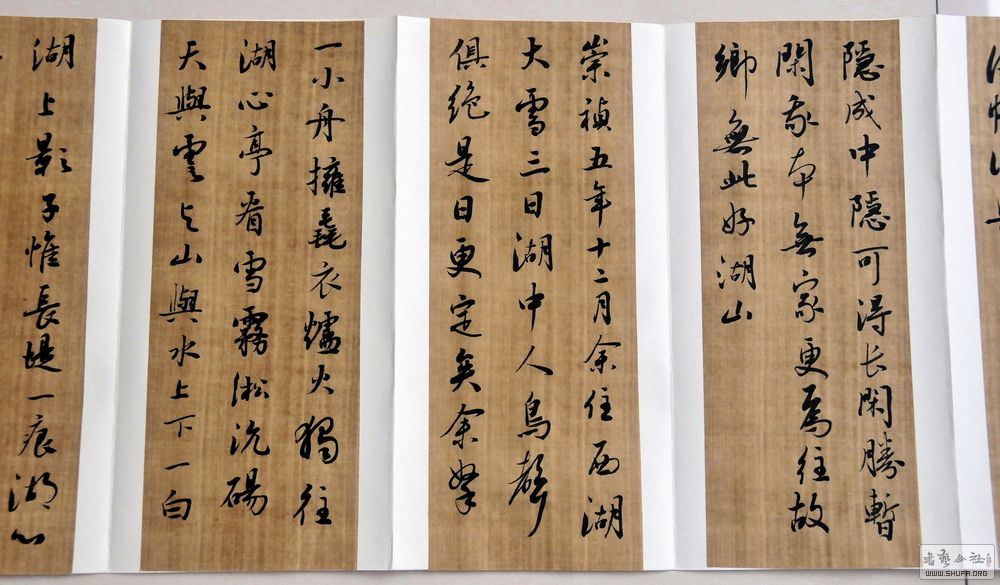 隱成中隱可得长閑勝暫
閑我本無家更焉往故
鄉無此好湖山
崇禎五年十二月余住西湖
大雪三日湖中人鳥聲
俱绝是日更定矣余拏
一小舟擁毳衣爐火獨往
湖心亭看雪霧淞沆碭
天與雲与山與水上下一白
湖上影子惟長堤一痕湖心
书艺公社
WWW.SHUFA.ORG